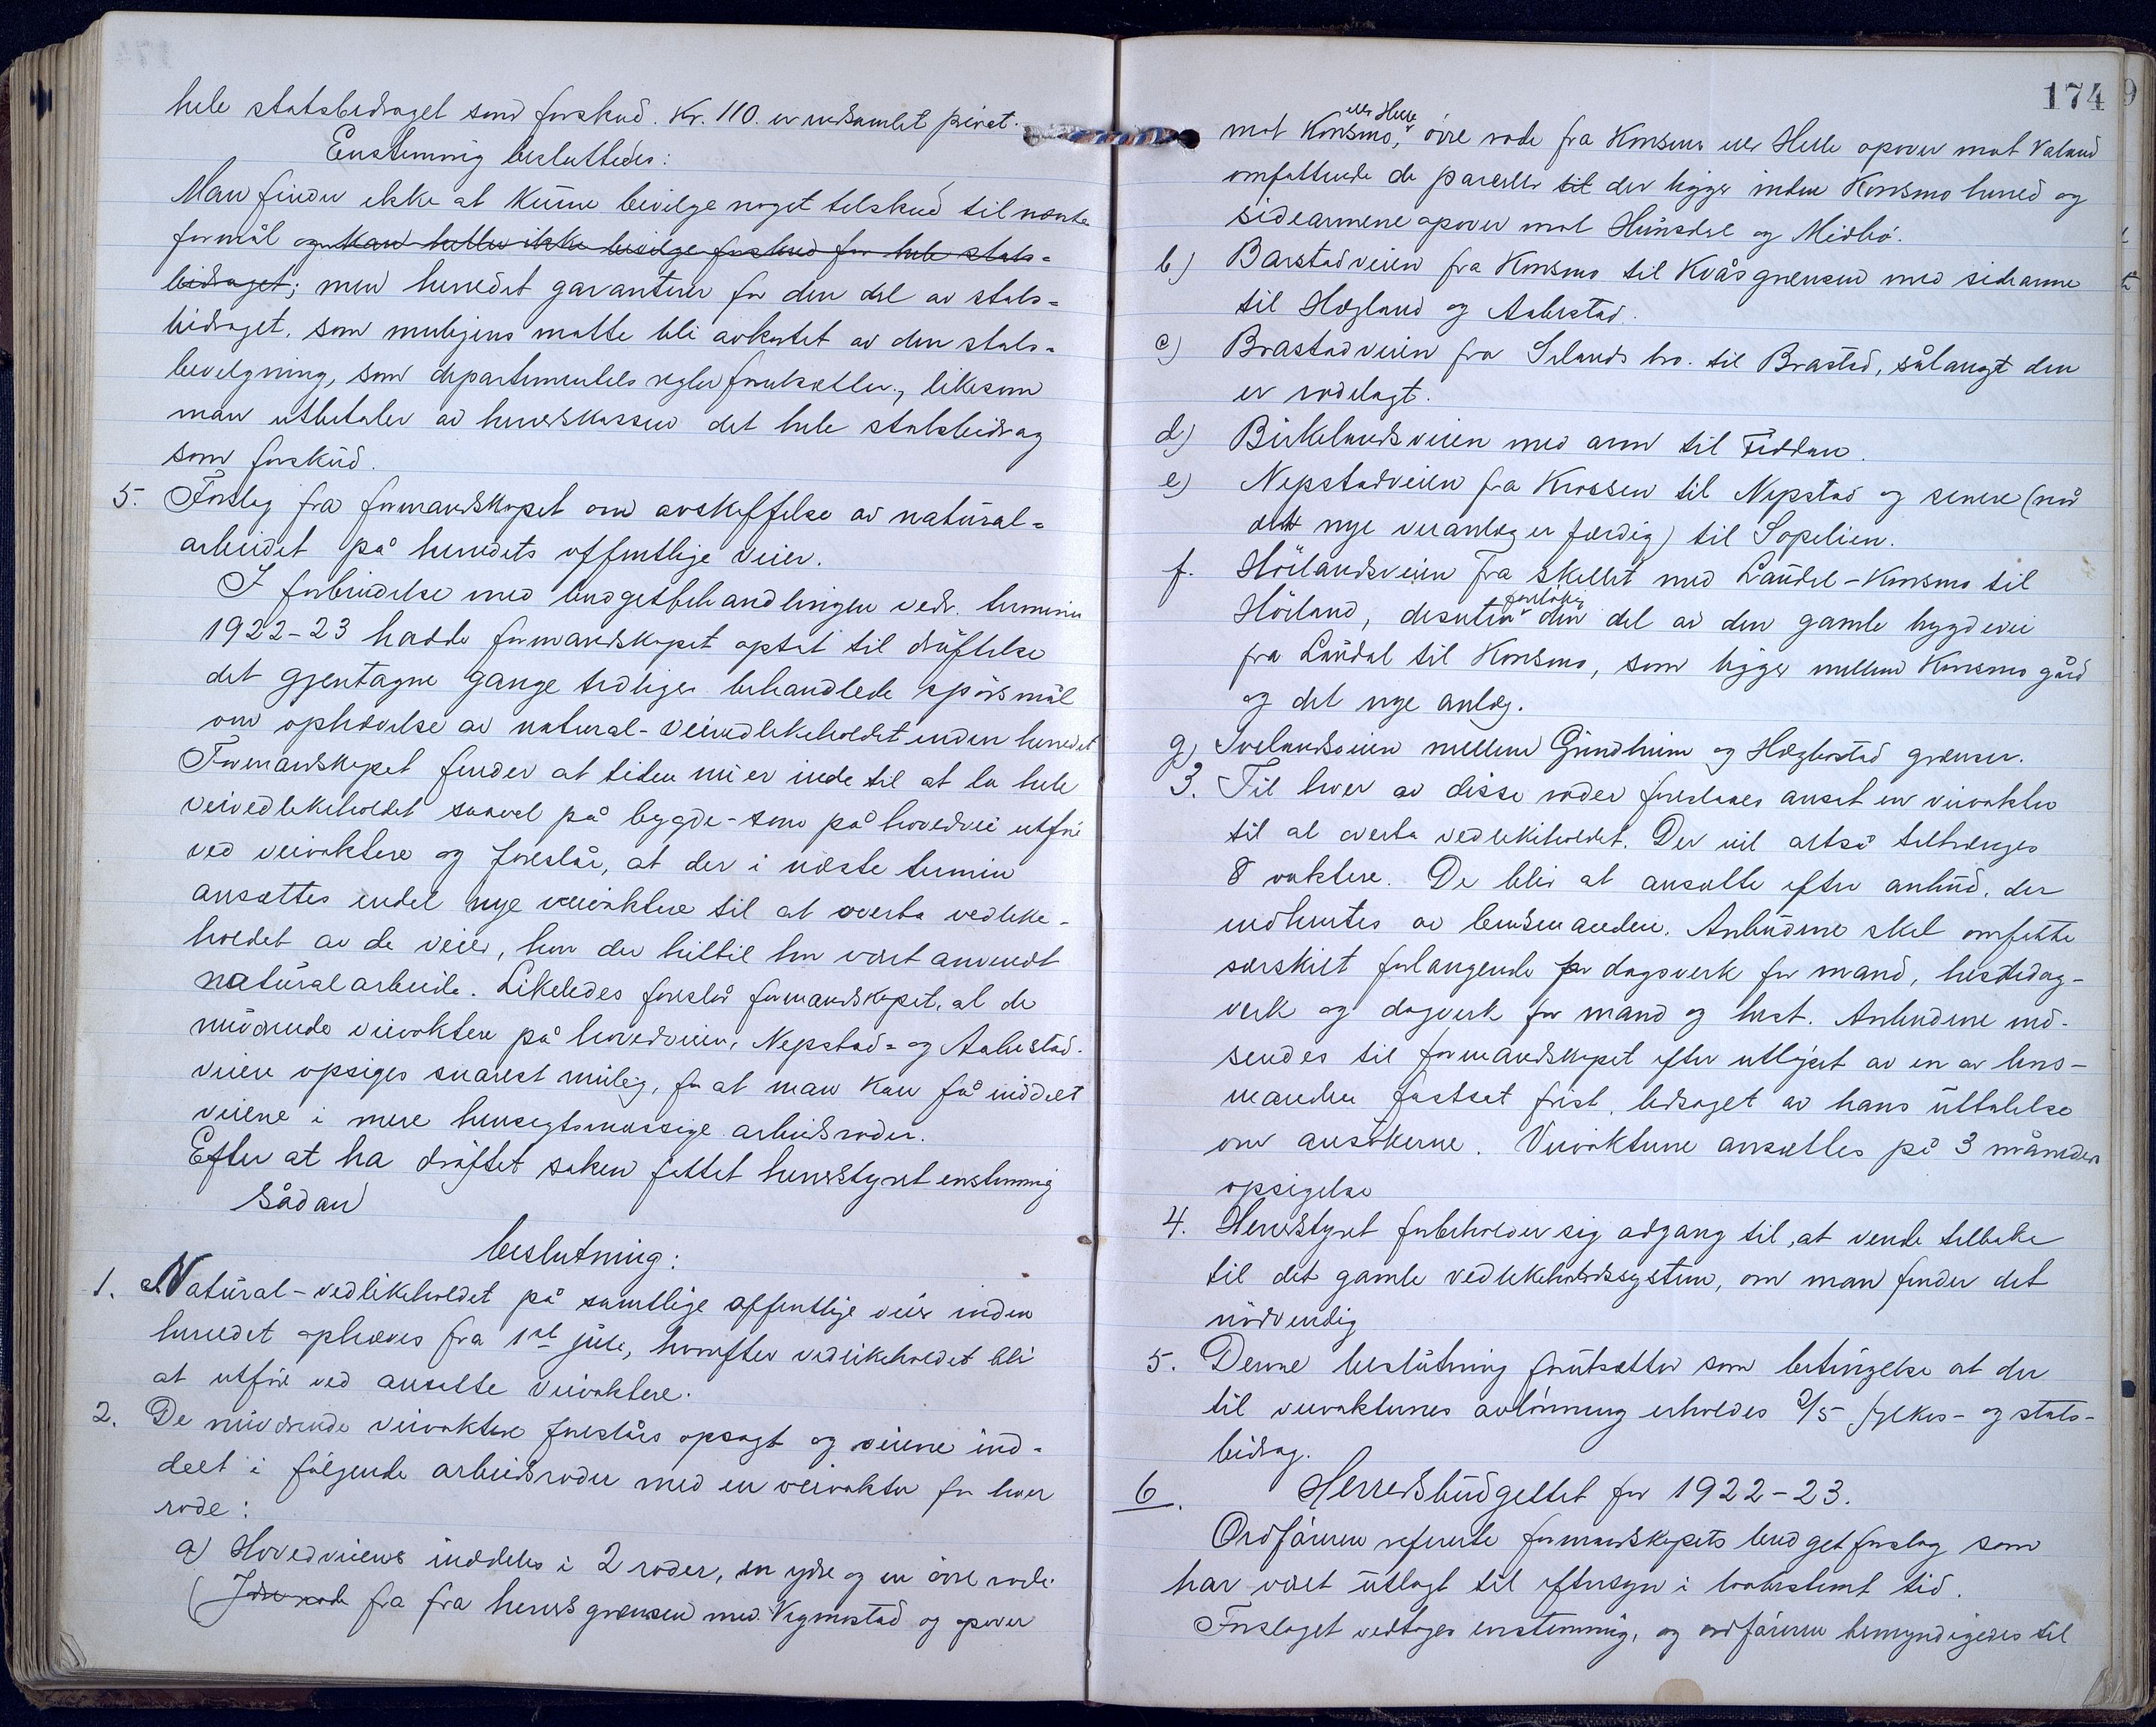 hele statsbidraget som forskud. Kr. 110. er indsamlet privat.
Enstemmig besluttedes:
Man finder ikke at kunne bevilge noget tilskud til nævnte
formål og kan heller ikke bevilge forskud for hele stats-
bidraget; men herredet garanterer for den del av stats-
bidraget, som muligens måtte bli avkortet av den stats-
bevilgning, som departementets regler forutsætter, likesom
man utbetaler av herredskassen det hele statsbidrag
som forskud.
5. Forslag fra formandskapet om avskaffelse av natural-
arbeidet på herredets offentlige veier.
I forbindelse med budgetbehandlingen vedr. termin
1922-23 hadde formandskapet optat til drøftelse
det gjentagne gange tidligere behandlede spörsmål
om ophævelse av natural-veivedlikeholdet inden herredet
Formandskapet finder at tiden nu er inde til at la hele
veivedlikeholdet saavel på bygde- som på hovedvei utföre
ved veivoktere og foreslår, at der i næste termin
ansættes endel nye veivoktere til at overta vedlike-
holdet av de veier, hvor der hittil har været anvendt
naturalarbeide. Likeledes foreslår formandskapet, at de
nuværende veivoktere på hovedveien, Nepstad- og Aalrestad-
veiene opsiges snarest mulig, for at man kan få inddelt
veiene i mere hensigtsmæssige arbeidsroder.
Efter at ha dröftet saken fattet herredstyret enstemmig
sådan
beslutning:
1. Natural-vedlikeholdet på samtlige offentlige veier inden
herredet ophæves fra 1st juli, hvorefter vedlikeholdet bli
at utföre ved ansatte veivoktere.
2. De nuværende veivoktere foreslåes opsagt og veiene ind-
delt i fölgende arbeidsroder med en veivokter for hver
rode:
a) Hovedveiene inddeles i 2 roder, en ydre og en övre rode.
(Ydre rode fra fra herredsgrænsen med Vigmostad og opover
174
mot Konsmo, eller Helle övre rode fra Konsmo eller Helle opover mot Valand
omfattende de parceller til der ligger inden Konsmo herred og
sidearmene opover mot Hunsdal og Midbö.
b) Barstadveien fra Konsmo til Kvåsgrensen med sidearme
til Hægland og Aalrestad.
c) Brastadveien fra Selands bro. til Brastad, sålangt den
er rodelagt.
d) Birkelandsveien med arm til Fiddan.
e) Nepstadveien fra Krossen til Nepstad og senere (når
det nye veranlæg er færdig) til Sopelien.
f. Höilandsveien fra skellet med Laudal-Konsmo til
Höiland, desuten foreløbig den del av den gamle bygdevei
fra Laudal til Konsmo, som ligger mellem Konsmo gård
og det nye anlæg.
g) Ivelandsveien mellem Grindheim og Hægbostad grænser.
3. Til hver av disse roder foreslaaes ansat en veivokter
til at overta vedlikeholdet. Der vil altså tiltrænges
8 voktere. De blir at ansætte efter anbud, der
indhentes av lensmanden. Anbudene skal omfatte
særskilt forlangende pr dagsverk for mand, hestedag-
verk og dagverk for mand og hest. Anbudene ind-
sendes til formandskapet efter utlöpet av en av lens-
manden fastsat frist, ledsaget av hans uttalelse
om ansökerne. Veivokterne ansættes på 3 måneders
opsigelse
4. Herredstyret forbeholder sig adgang til, at vende tilbake
til det gamle vedlikeholdssystem, om man finder det
nödvendig
5. Denne beslutning forutsætter som betingelse at der
til veivokternes avlönning erholdes 2/5 fylkes- og stats-
bidrag.
6. Herredsbudgettet for 1922-23.
Ordföreren refererte formandskapets budgetforslag som
har været utlagt til eftersyn i lovbestemt tid.
Forslaget vedtages enstemmig, og ordföreren bemyndigedes til